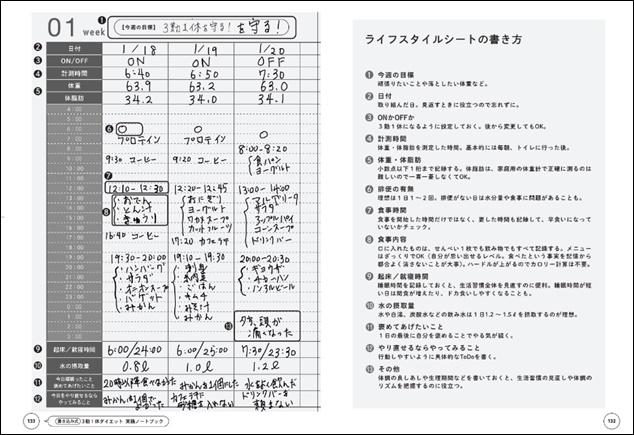 01 week
❶
【今週の目標】 3勤1休を守る! を守る!
❷ 日付 1/18 1/19 1/20
❸ ON/OFF ON ON OFF
❹ 計測時間 6:40 6:50 7:30
❺ 体重 63.9 63.2 63.0
体脂肪 34.2 34.0 34.1
4:00
5:00
6:00
❻
7:00 プロテイン プロテイン
8:00 8:00-8:20
食パン
9:00 9:30 コーヒー 9:20 コーヒー ヨーグルト
10:00
11:00
❼
12:00 12:10-12:30 12:20-12:45 13:00-14:00
❽
おでん おにぎり
とん汁 ヨーグルト サラダ
きゅうり ワカメスープ アップルパイ
カットフルーツ コーンスープ
16:40 コーヒー 17:20 カフェラテ ドリンクバー
19:30-20:00 19:10-19:30 20:00-20:30
ハンバーグ 刺身 ギョウザ
サラダ チャーハン
オニオンスープ ごはん ノンアルビール
バーゲット キムチ
みかん みそ汁
みかん
⓭ 夕方、頭が
痛くなった
❾ 起床/就寝時間 6:00/24:00 6:00/25:00 7:30/23:30
❿ 水の摂取量 0.8ℓ 1.0ℓ 1.2ℓ
⓫ 今日頑張ったこと
褒めてあげたいこと
20時以降食べなかった みかんを1個にした 水を多く飲んだ
⓬ 今日をやり直せるなら
やってみること
カフェラテに
砂糖を入れない
ドリンクバーを
頼まない
133 書き込み式 3勤1休ダイエット 実践ノートブック
ライフスタイルシートの書き方
❶ 今週の目標
頑張りたいことや落としたい体重など。
❷ 日付
取り組んだ日。見返すときに役立つので忘れずに。
❸ ONかOFFか
3勤1休になるように設定しておく。後から変更してもOK。
❹ 計測時間
体重・体脂肪を測定した時間。基本的には毎朝、トイレに行った後。
❺ 体重・体脂肪
小数点以下1桁まで記録する。体脂肪は、家庭用の体重計で正確に測るのは
難しいので一喜一憂しなくてOK。
❻ 排便の有無
理想は1日1〜2回。排便がない日は水分量や食事に問題があることも。
❼ 食事時間
食事を開始した時間だけではなく、要した時間も記録して、早食いになって
いないかチェック。
❽ 食事内容
口に入れたものは、せんべい1枚でも飲み物でもすべて記録する。メニュー
はざっくりでOK(自分が思い出せるレベル。食べたという事実を記憶から
都合よく消さないことが大事)。ハードルが上がるのでカロリー計算は不要。
❾ 起床/就寝時間
睡眠時間を記録しておくと、生活習慣全体を見直すのに便利。睡眠時間が短
い日は間食が増えたり、ドカ食いしやすくなることも。
❿ 水の摂取量
水や白湯、炭酸水などの飲み水は1日1.2〜1.5ℓを摂取するのが理想。
⓫ 褒めてあげたいこと
1日の最後に自分を褒めることでやる気が続く。
⓬ やり直せるならやってみること
行動しやすいように具体的なToDoを書く。
⓭ その他
体調の良しあしや生理期間などを書いておくと、生活習慣の見直しや体調の
リズムを把握するのに役立つ。
132